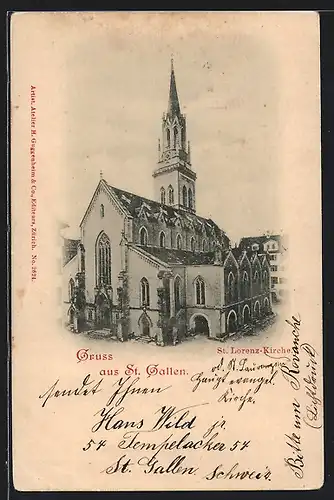 Artist. Atelier H. Guggenheim & Co., Editeurs, Zürich. No. 2621.
Gruss
aus St. Gallen.
St. Lorenz-Kirche.
od. St. Laurenzen
Haupt evangel.
Kirche.
sendet Ihnen
Hans Wild jr.
54 Tempelacker 54
St. Gallen Schweiz
Bitte um Revanche